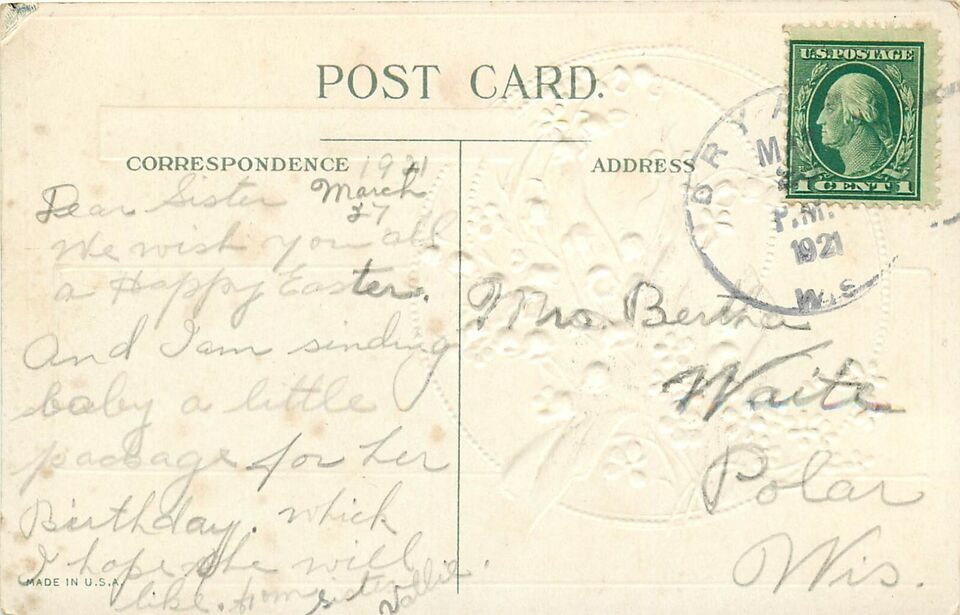 POST CARD.
U.S. POSTAGE
1 CENT 1
BRYA
MA
P.M.
1921
WIS
CORRESPONDENCE
ADDRESS
1921
March
27
Dear Sister
We wish you all
a Happy Easter.
And I am sinding
baby a little
package for her
Birthday. which
I hope she will
like. from sister
Vallie.
Mrs. Bertha
Waite
Polar
Wis.
MADE IN U.S.A.